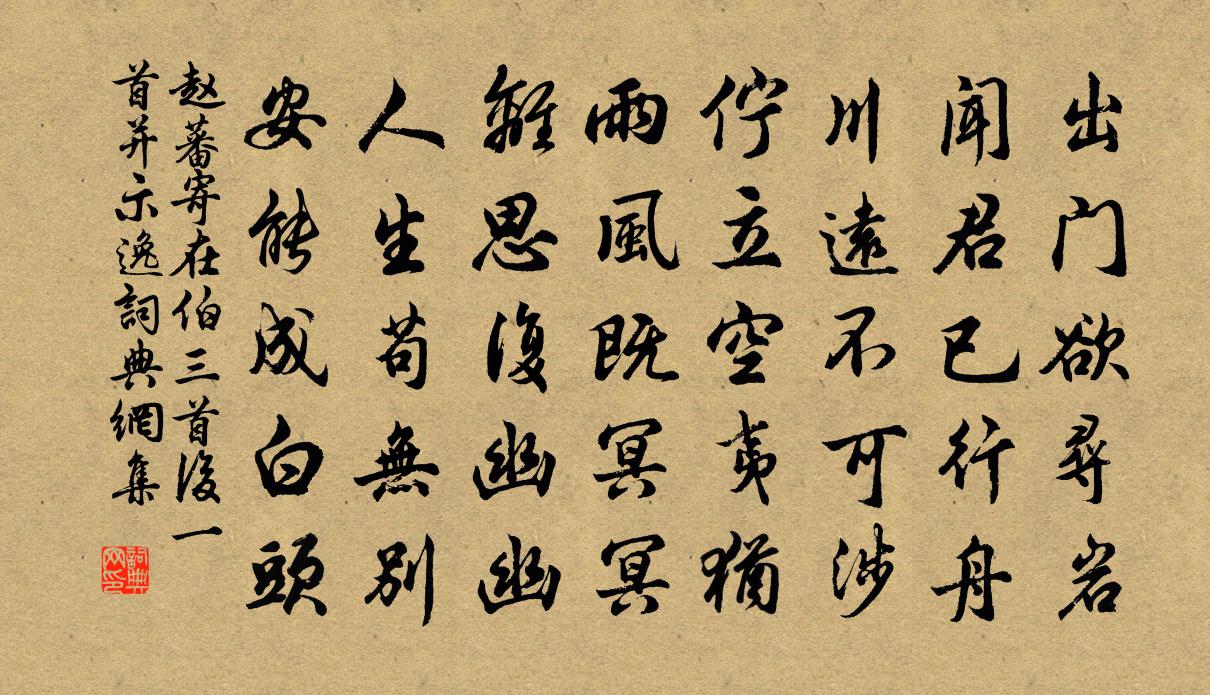 出门欲尋岩
闻君已行舟
川遠不可涉
佇立空夷猶
雨風既冥冥
離思復幽幽
人生苟無別
安能成白頭
赵蕃寄在伯三首後一
首并示逸詞典網集
詞典
网印